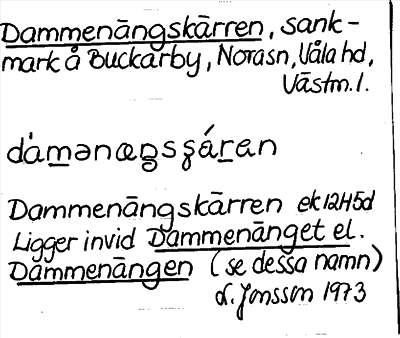 Dammenängskärren, sank-
mark å Buckarby, Norasn, Våla hd,
Västm. l.
dȧmənæŋsʂáran
Dammenängskärren ek 12H5d
Ligger invid Dammenänget el.
Dammenängen (se dessa namn)
L. Jonsson 1973